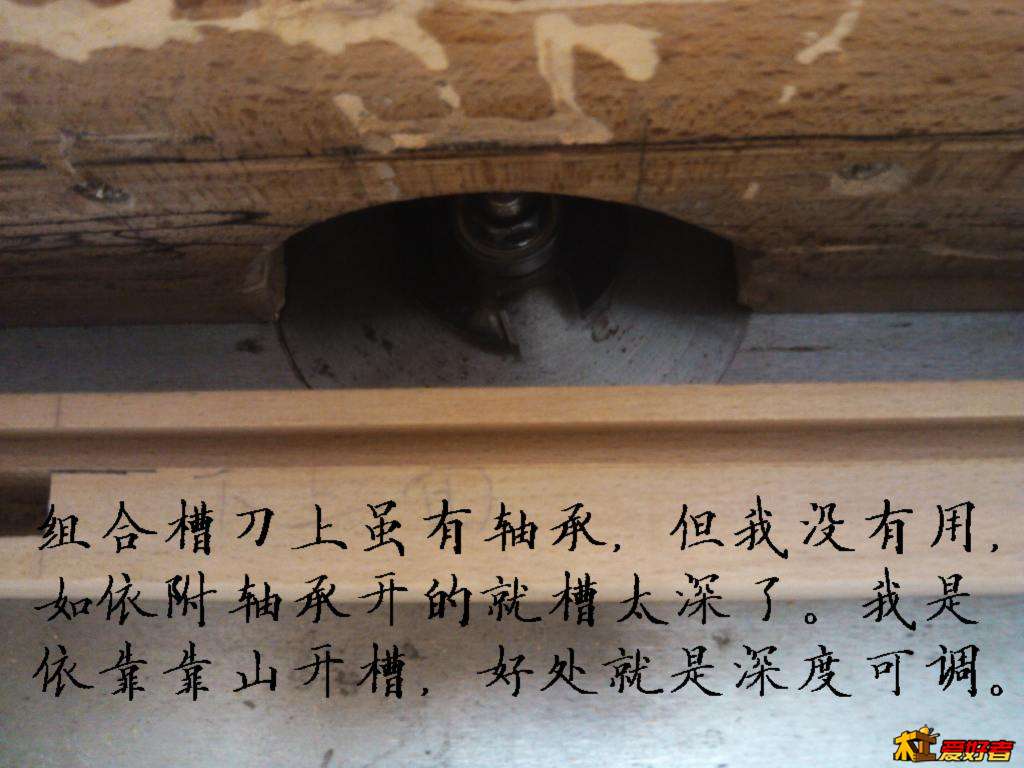 组合槽刀上虽有轴承，但我没有用，
如依附轴承开的就槽太深了。我是
依靠靠山开槽，好处就是深度可调。
木工爱好者